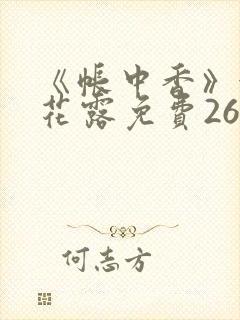 《帳中香》
花露免費26
何志方